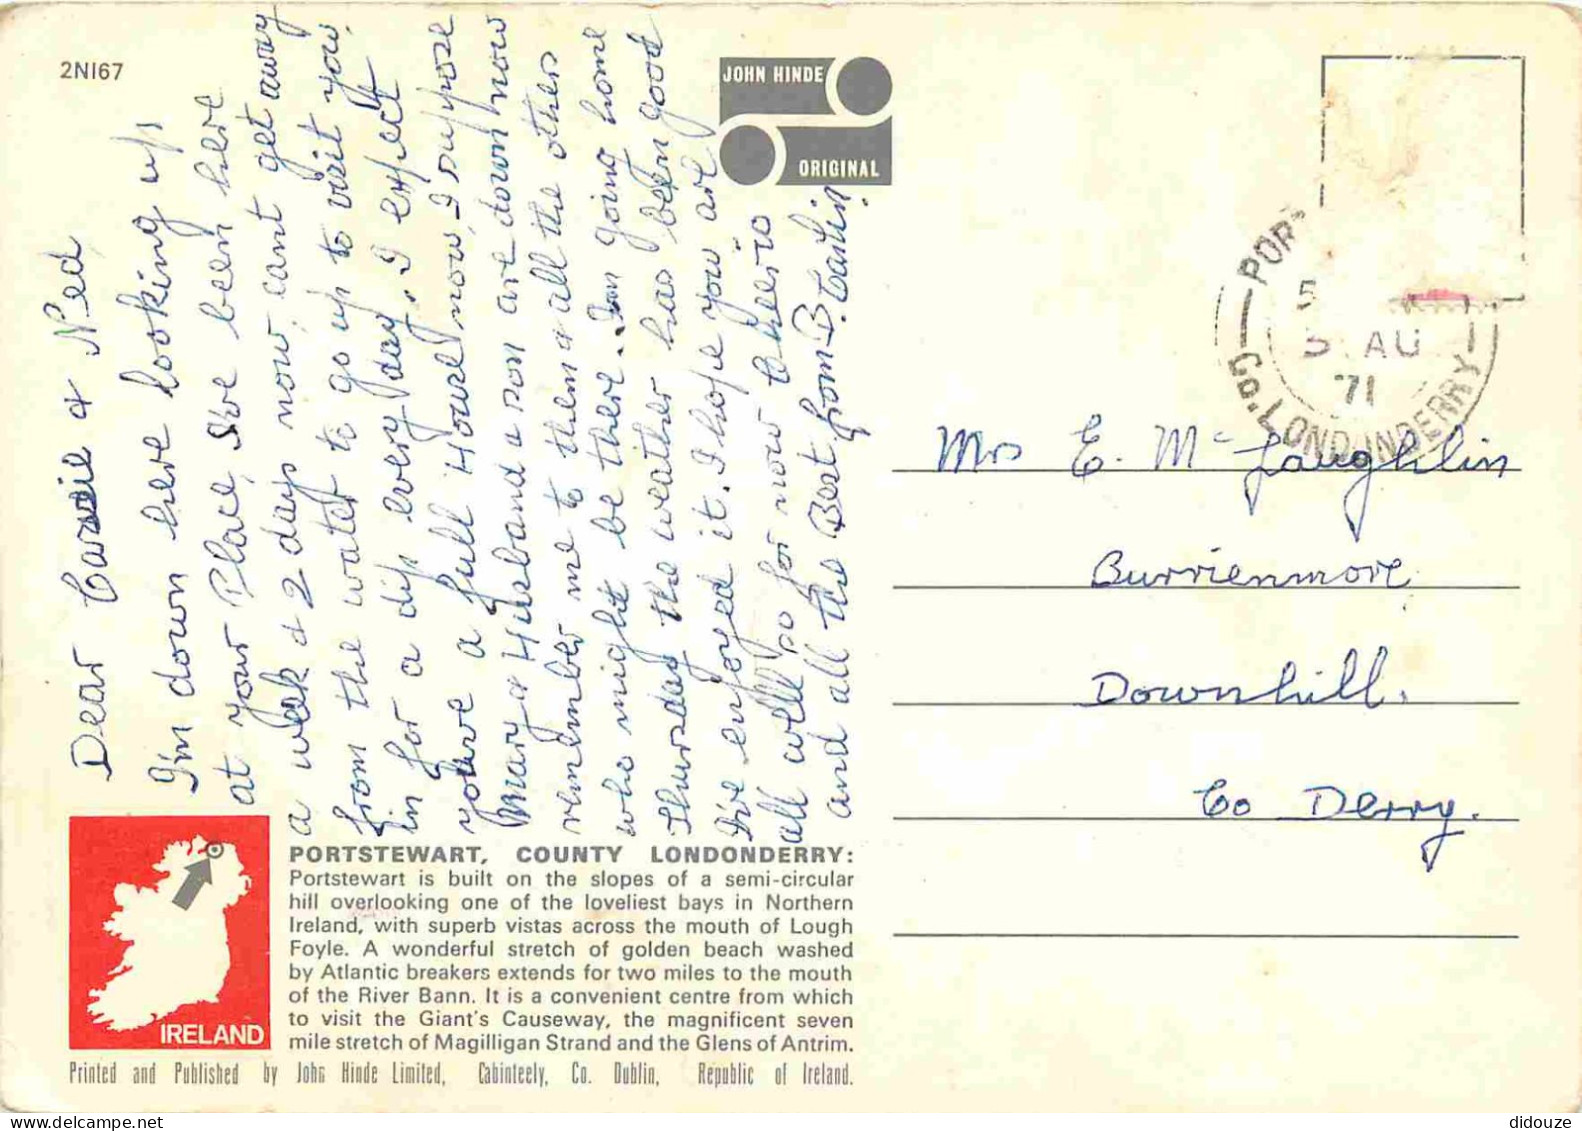 2NI67
JOHN HINDE
ORIGINAL
Dear Carrie & Ned
I'm down here looking up
at your Place. I've been here
a week & 2 days now, cant get away
from the water to go up to visit you.
in for a dip every day. I expect
youve a full House now, I suppose
Mary & Husband & son are down now
remember me to them & all the others
who might be there. Im going home
Thursday the weather has been good
I've enjoyed it. I hope you are
all well so for now Cheerio
and all the Best from B.
POR
5 AU
71
CO. LONDONDERRY
Mrs E. Mc Laughlin
Burrienmore
Downhill.
Co Derry.
IRELAND
PORTSTEWART, COUNTY LONDONDERRY:
Portstewart is built on the slopes of a semi-circular
hill overlooking one of the loveliest bays in Northern
Ireland, with superb vistas across the mouth of Lough
Foyle. A wonderful stretch of golden beach washed
by Atlantic breakers extends for two miles to the mouth
of the River Bann. It is a convenient centre from which
to visit the Giant's Causeway, the magnificent seven
mile stretch of Magilligan Strand and the Glens of Antrim.
Printed and Published by John Hinde Limited, Cabinteely, Co. Dublin, Republic of Ireland.
didouze